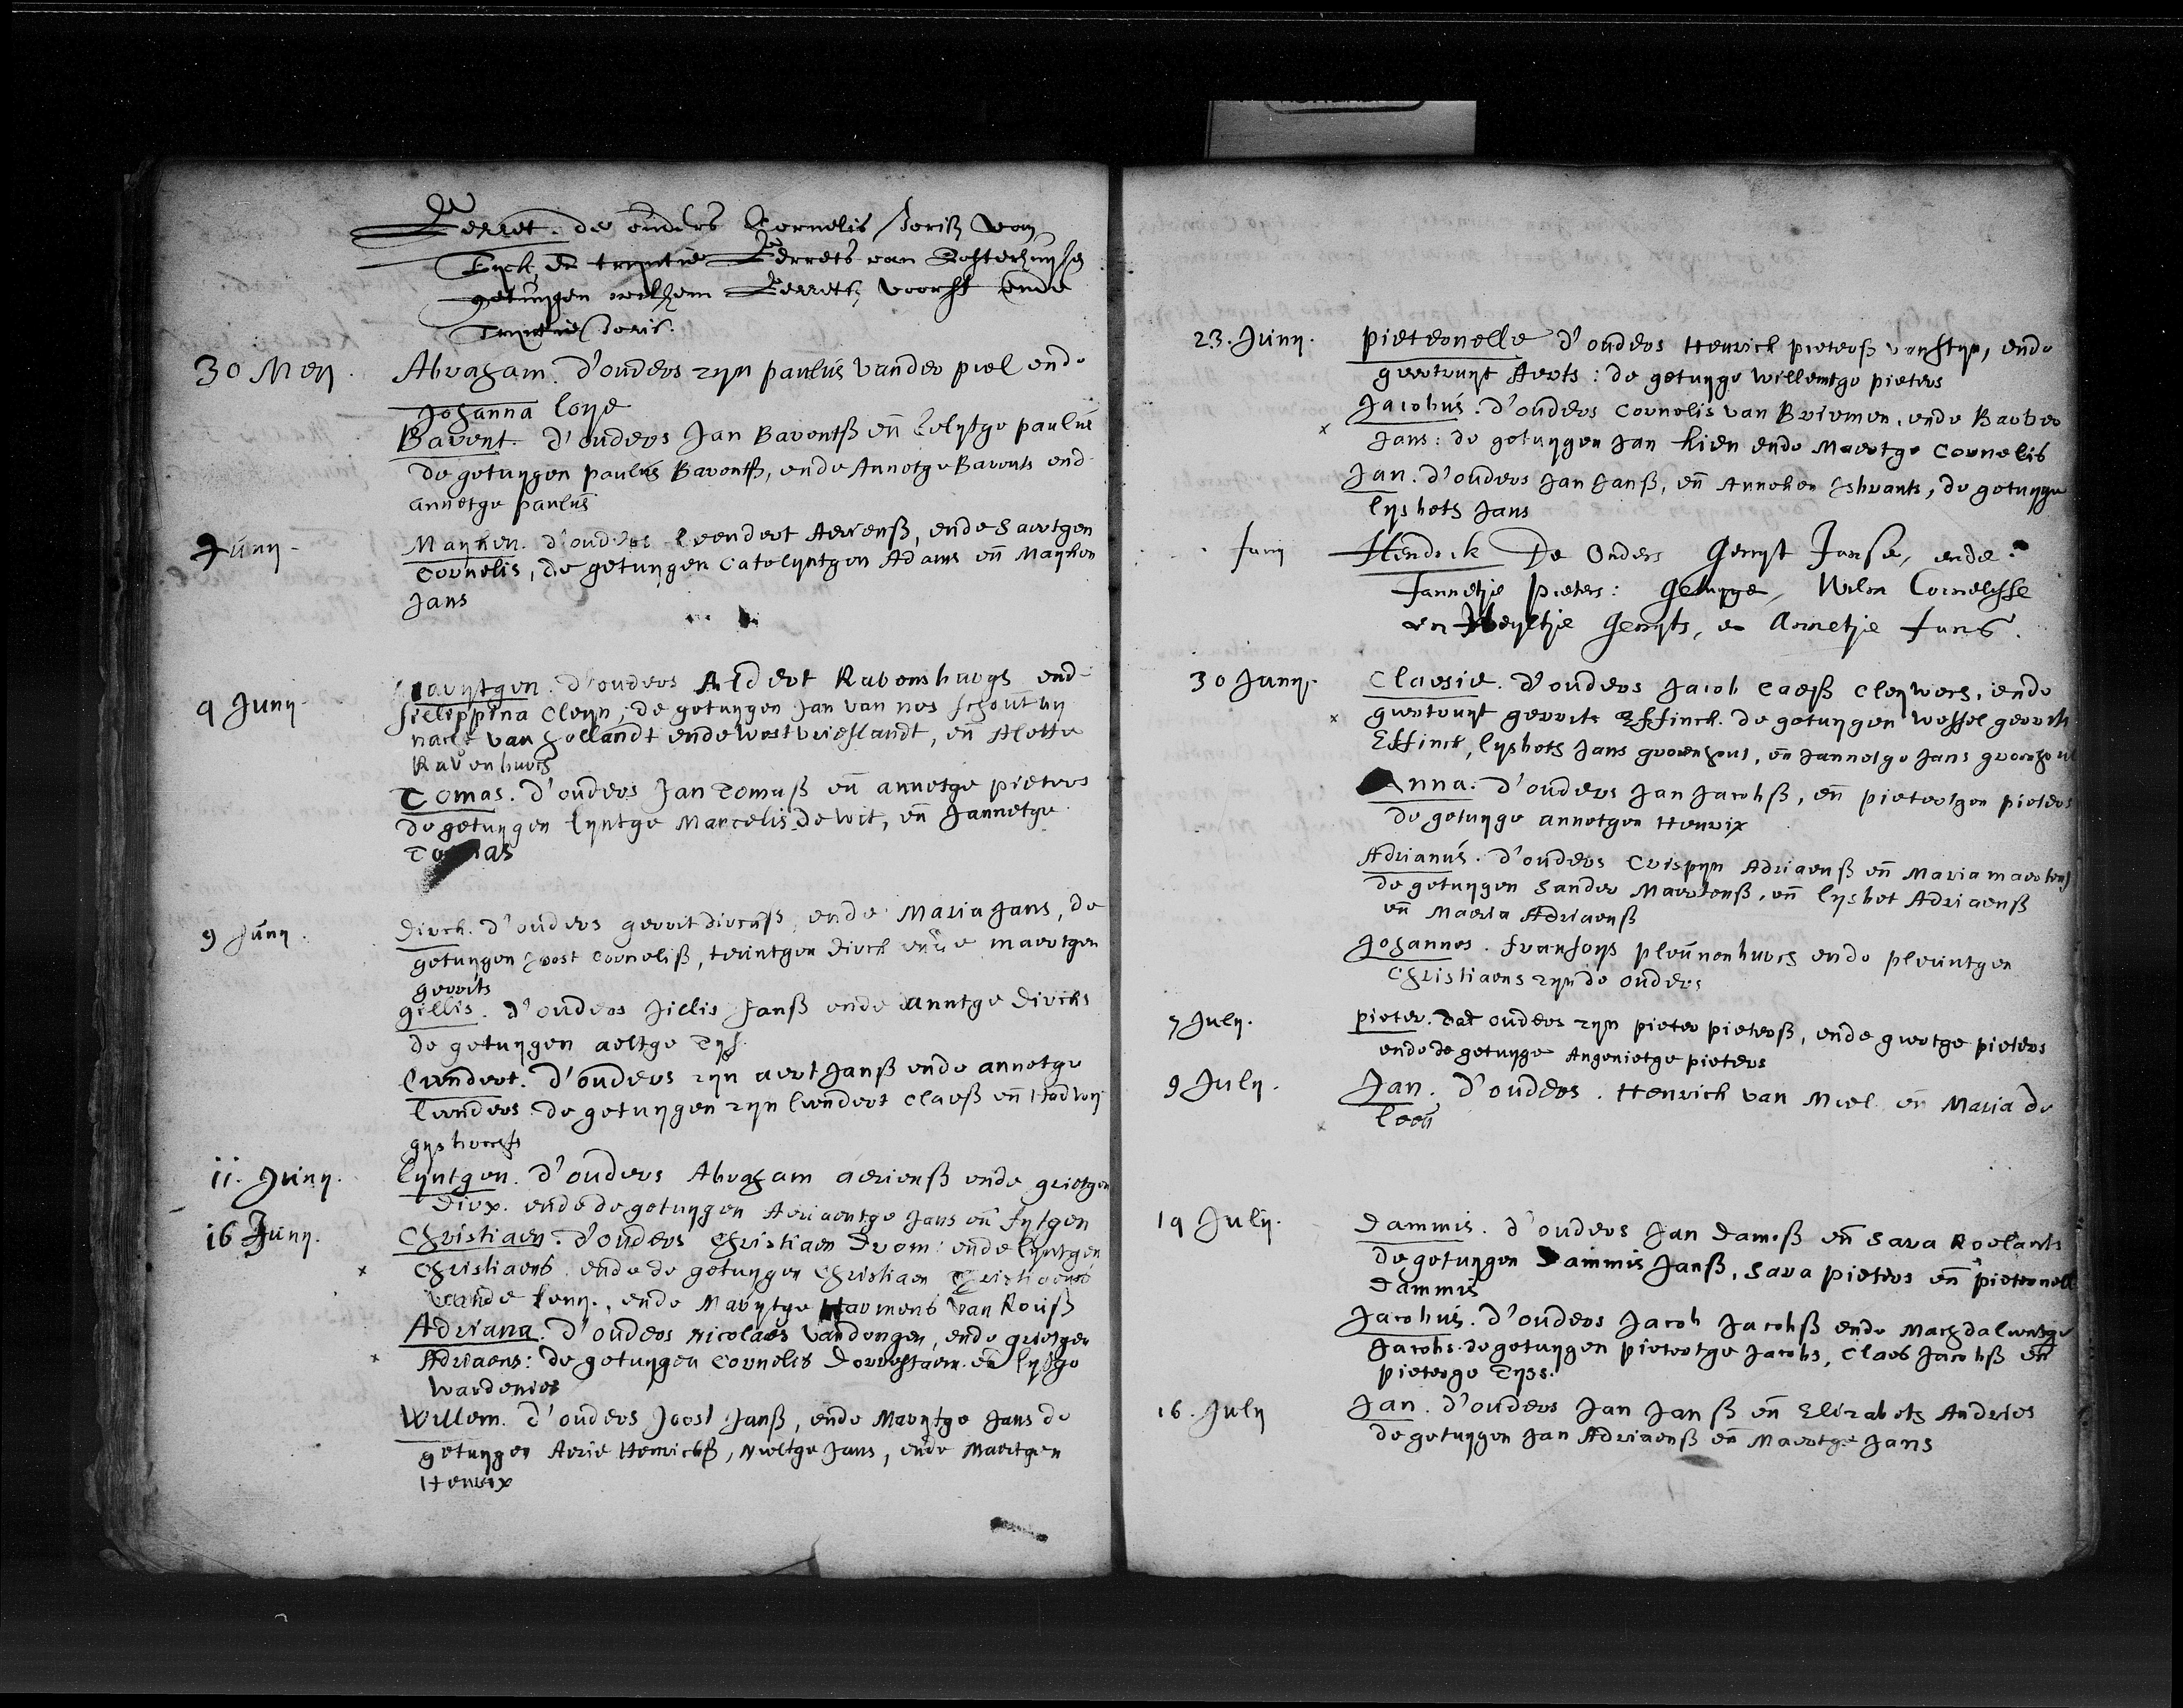 Gerret. de ouders Cornelis Joriß van
Eyck, en trijntie Gerrets van Oosterhuyse
getuygen wilhem Gerrets, voorst ende
Trijntie Joris.
30 Mey. Abraham. d'ouders zyn paulus vander piel ende
Johanna loye
Barent. d'ouders Jan Barentß en lelytge paulus
de getuygen paulus Barentß, ende Annetge Barents end
annetge paulus
Juny. Mayken. d'ouders leendert Aerienß, ende Saertgen
Cornelis, de getuygen Catelyntgen Adams en Mayken
Jans
9 Juny. Marytgen. d'ouders Aldert Ravensbergh end
filippina Cleyn, de getuygen Jan van nes schout by
nacht van hollandt ende westvrieslandt, en Alette
Ravenburch
Tomas. d'ouders Jan Tomasß en annetge pieters
de getuygen lyntge Marcelis de wit, en Jannetge
Tomas
9 Juny. Dirck. d'ouders gerrit dircksß, ende Maria Jans, de
getuygen Joost Cornelisß, teuntgen dirck ende maertgen
gerrits
gillis. d'ouders Jillis Janß ende anntge dircks
de getuygen aeltge Tys
leendert. d'ouders zyn aert Janß ende annetge
leenders de getuygen zyn leendert Claesß en
gysbrechts
11. Juny. lyntgen. d'ouders Abraham aerienß ende grietgen
dirx. ende de getuygen Ariaentge Jans en fytgen
16 Juny. Christiaen. d'ouders Christiaen drom: ende lyntgen
x Christiaens ende de getuygen Christiaen Christiaens
vande leny., ende Marytge Harmens van
Adriana. d'ouders Nicolaes van dongen, ende grietgen
x Adriaens: de getuygen Cornelis en lystge
wardenier
Willem. d'ouders Joost Janß, ende Marytge Jans de
getuygen Aerie Henricksß, Neeltge Jans, ende Maertgen
Henrix
23. Juny. Pieternelle d'ouders Henrick pietersß van styn, ende
geertruyt Aerts: de getuyge willemtge pieters
Jacobus. d'ouders Cornelis van Briemen, ende Barber
x Jans: de getuygen Jan kien ende Maertge Cornelis
Jan. d'ouders Jan Janß, en Anneken Isbrants, de getuyge
lysbets Jans
Juny Hendrick De Ouders Gerryt Janse, ende
Jannetje Pieters: Getuyge, Wilm Cornelisse
en Weyltje Gerryts, en Annetje Jans.
30 Juny. Claesie. d'ouders Jacob Caesß Cleywers, ende
x geertruyt gerrits Effinck. de getuygen wessel gerrits
Effinck, lysbets Jans groenhout, en Jannetge Jans groenhout
Anna. d'ouders Jan Jacobsß, en pietertgen pieters
de getuyge annetgen Henrix
Adrianus. d'ouders Crispyn Adriaenß en Maria maertens
de getuygen Sander Maertenß, en lysbet Adriaenß
en Maeria Adriaenß
Johannes. fransoys pleunenburch ende pleuntgen
Christiaens zyn de ouders
7 July. pieter. dat ouders zyn pieter pietersß, ende geertge pieters
ende de getuyge Angenietge pieters
9 July. Jan. d'ouders. Henrick van Miel en Maria de
x leeu
19 July. Dammis. d'ouders Jan damesß en Sara Roelants
de getuygen Dammis Janß, Sara pieters en pieternell
Dammis
Jacobus. d'ouders Jacob Jacobsß ende Machdaleentge
Jacobs. de getuygen pietertge Jacobs, Claes Jacobsß en
pieterge Tyss.
16. July Jan. d'ouders Jan Janß en Elizabets Andries
de getuygen Jan Adriaenß en Maertge Jans